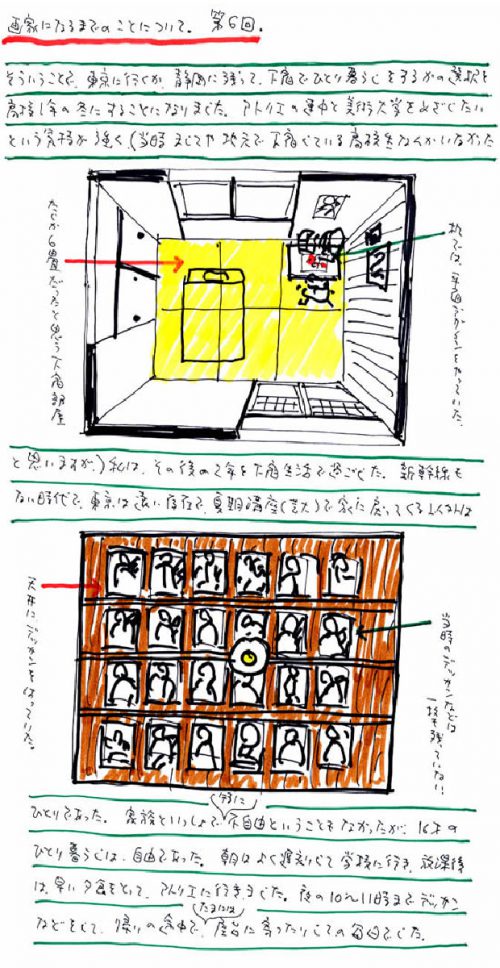 画家になるまでのことについて。 第6回。
そういうことで、東京に行くか、静岡に残って、下宿でひとり暮らしをするかの選択を
高校1年の冬にすることになりました。アトリエの連中と美術大学をめざしたい
という気持が強く(当時 まして地元で下宿している高校生なんかいなかった
たしか6畳だったと思う下宿部屋
机では、平面デッサンをやっていた。
と思いますが、)私は、その後の2年を下宿生活で過ごした。新幹線も
ない時代で、東京は遠い存在で、夏期講座(芸大)で家に戻ってくるくらいは
天井にデッサンをはっていた。
当時のデッサンなどは
一枚も残っていない。
ひとりであった。家族といっしょで特に不自由ということもなかったが、16才の
ひとり暮らしは、自由であった。朝はよく遅刻して学校に行き、放課後
は、早い夕食をとって、アトリエに行きました。夜の10~11時までデッサン
などをして、帰りの途中で、たまには屋台に寄ったりしての毎日でした。